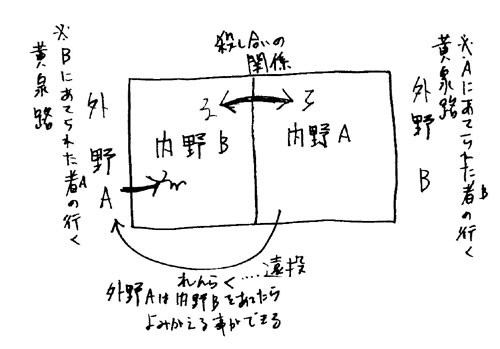 殺し合いの
関係
※Bにあてられた者Aの行く
黄泉路
外野A
内野B
内野A
外野B
※Aにあてられた者Bの行く
黄泉路
れんらく....遠投
外野Aは内野Bをあてたら
よみがえる事ができる